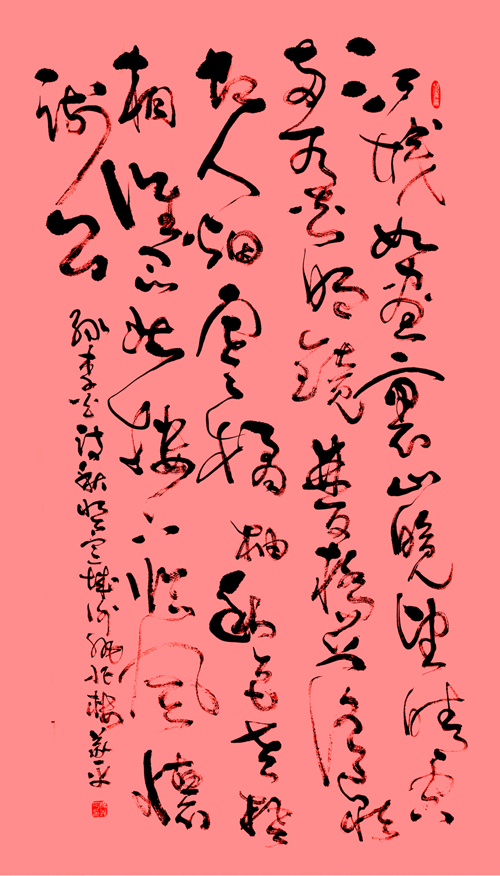 江城如畫裏山晚望晴空
兩水夾明鏡雙橋落彩
虹人烟寒橘柚秋色老梧
桐誰念北樓上臨風懷
謝公
錄李白詩秋登宣城謝朓北樓